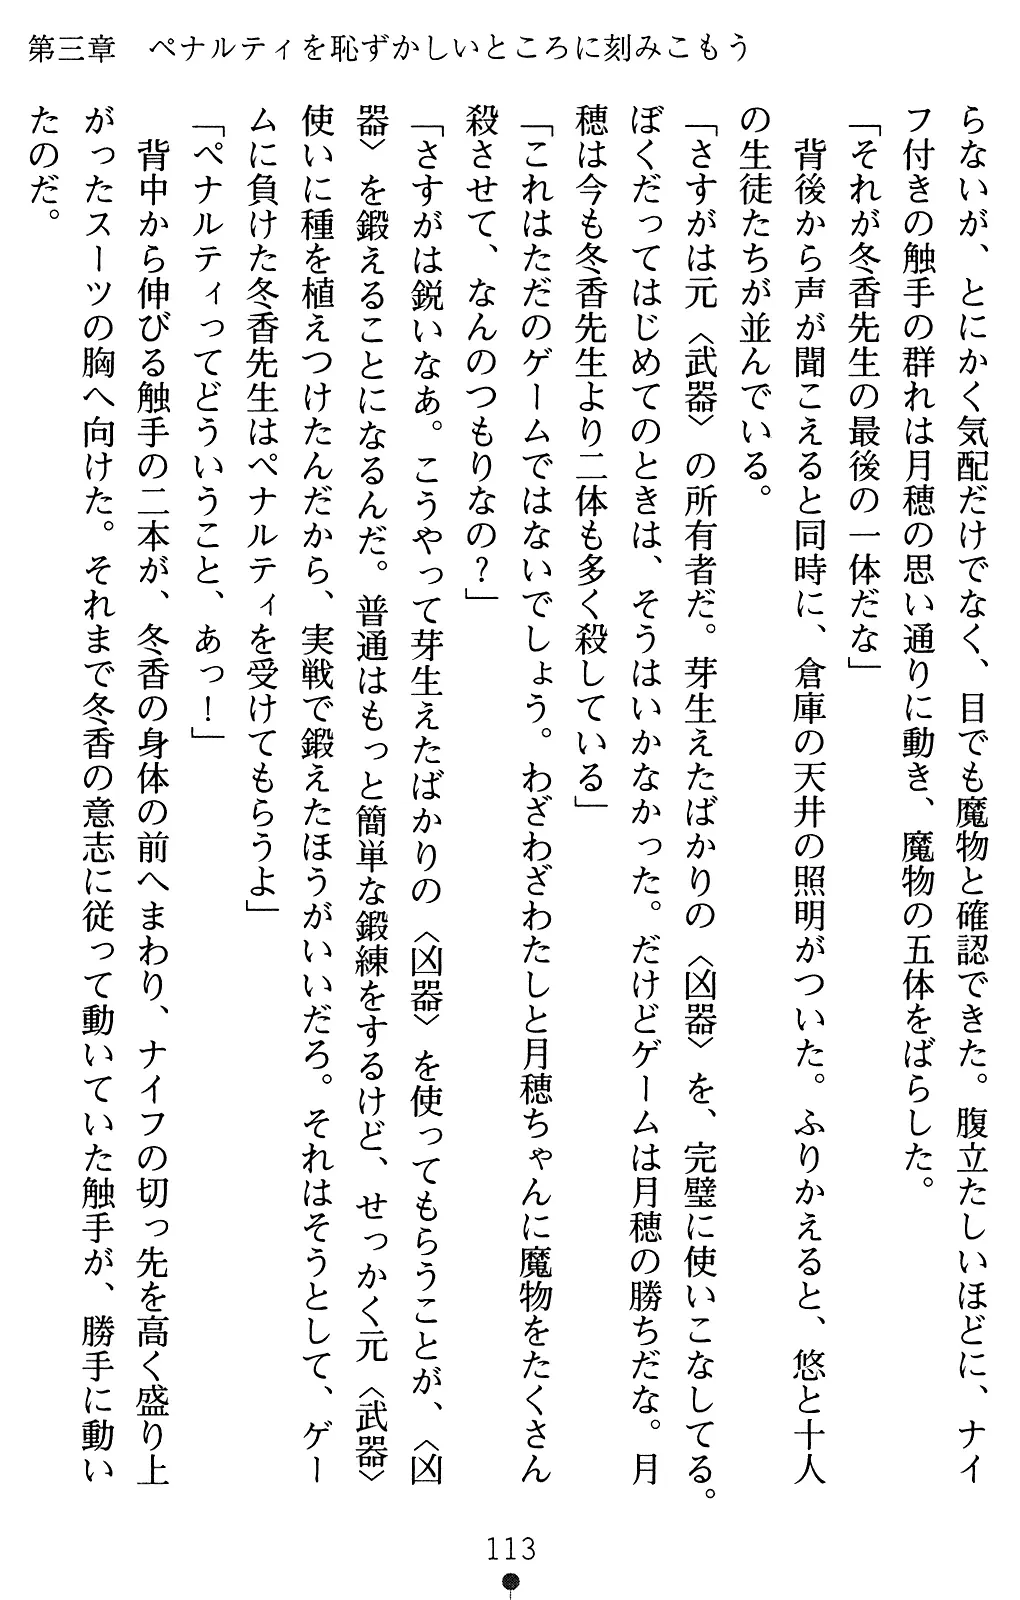 第三章　ペナルティを恥ずかしいところに刻みこもう
らないが、とにかく気配だけでなく、目でも魔物と確認できた。腹立たしいほどに、ナイ
フ付きの触手の群れは月穂の思い通りに動き、魔物の五体をばらした。
「それが冬香先生の最後の一体だな」
　背後から声が聞こえると同時に、倉庫の天井の照明がついた。ふりかえると、悠と十人
の生徒たちが並んでいる。
「さすがは元〈武器〉の所有者だ。芽生えたばかりの〈凶器〉を、完璧に使いこなしてる。
ぼくだってはじめてのときは、そうはいかなかった。だけどゲームは月穂の勝ちだな。月
穂は今も冬香先生より二体も多く殺している」
「これはただのゲームではないでしょう。わざわざわたしと月穂ちゃんに魔物をたくさん
殺させて、なんのつもりなの？」
「さすがは鋭いなあ。こうやって芽生えたばかりの〈凶器〉を使ってもらうことが、〈凶
器〉を鍛えることになるんだ。普通はもっと簡単な鍛練をするけど、せっかく元〈武器〉
使いに種を植えつけたんだから、実戦で鍛えたほうがいいだろ。それはそうとして、ゲー
ムに負けた冬香先生はペナルティを受けてもらうよ」
「ペナルティってどういうこと、あっ！」
　背中から伸びる触手の二本が、冬香の身体の前へまわり、ナイフの切っ先を高く盛り上
がったスーツの胸へ向けた。それまで冬香の意志に従って動いていた触手が、勝手に動い
たのだ。
113